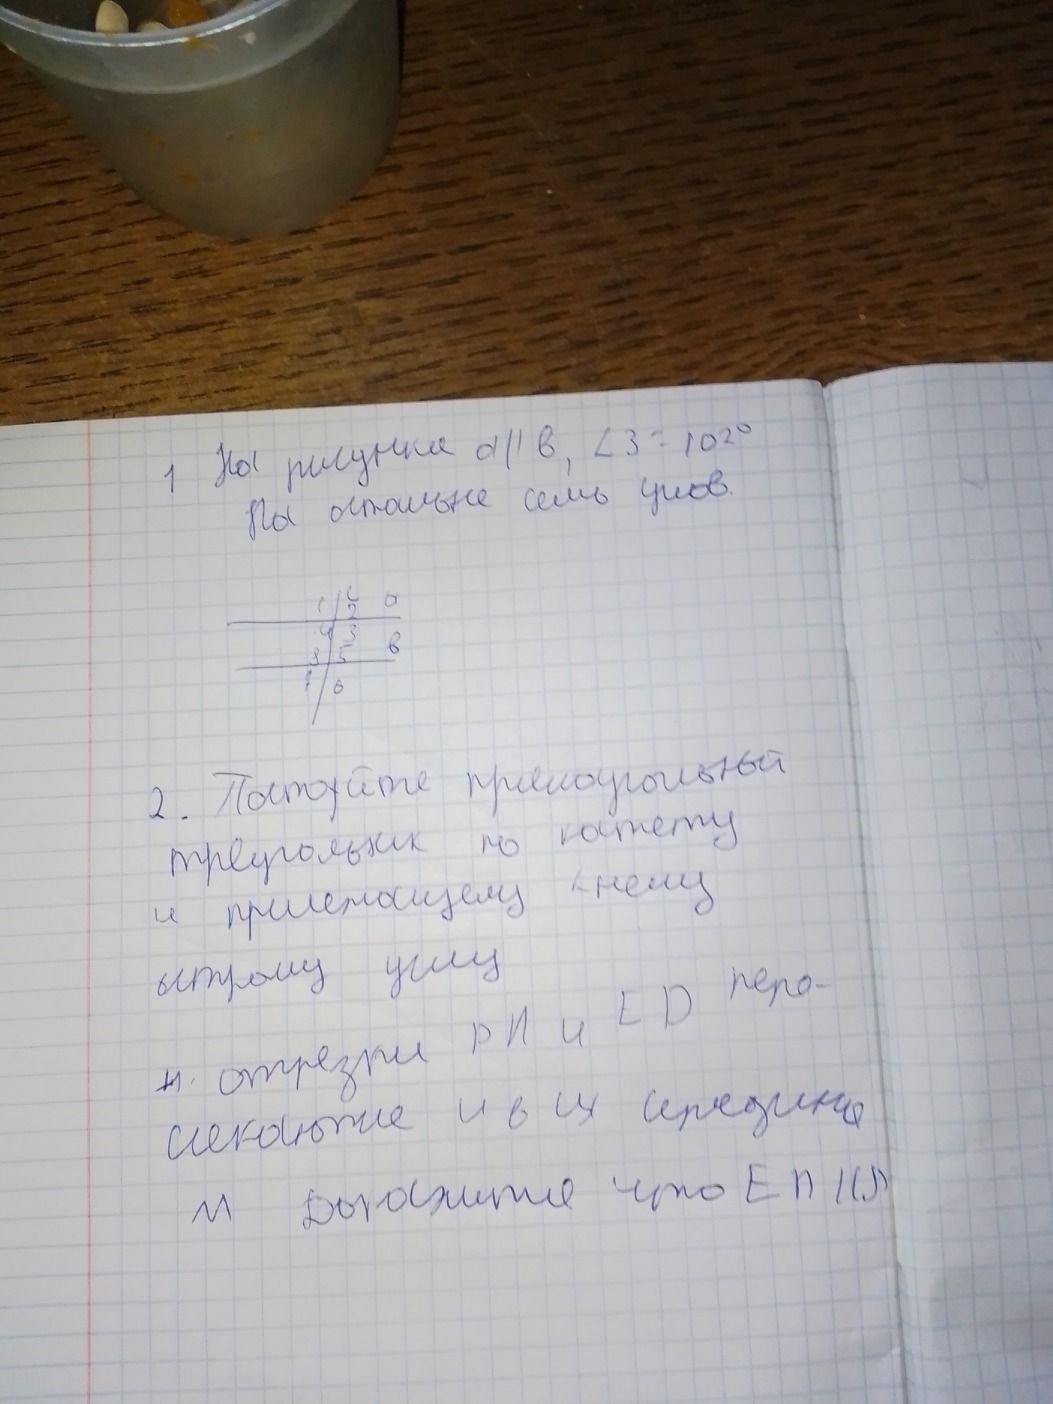 1 На рисунке a || в, ∠3 = 102°
На остальне семь углов.
1 2 a
4 3 в
8 5
6
2. Постройте прямоугольный
треугольник по катету
и прилежащему кнему
острому углу
отрезки и ED пере-
секаются и в их середине
M Докажите что